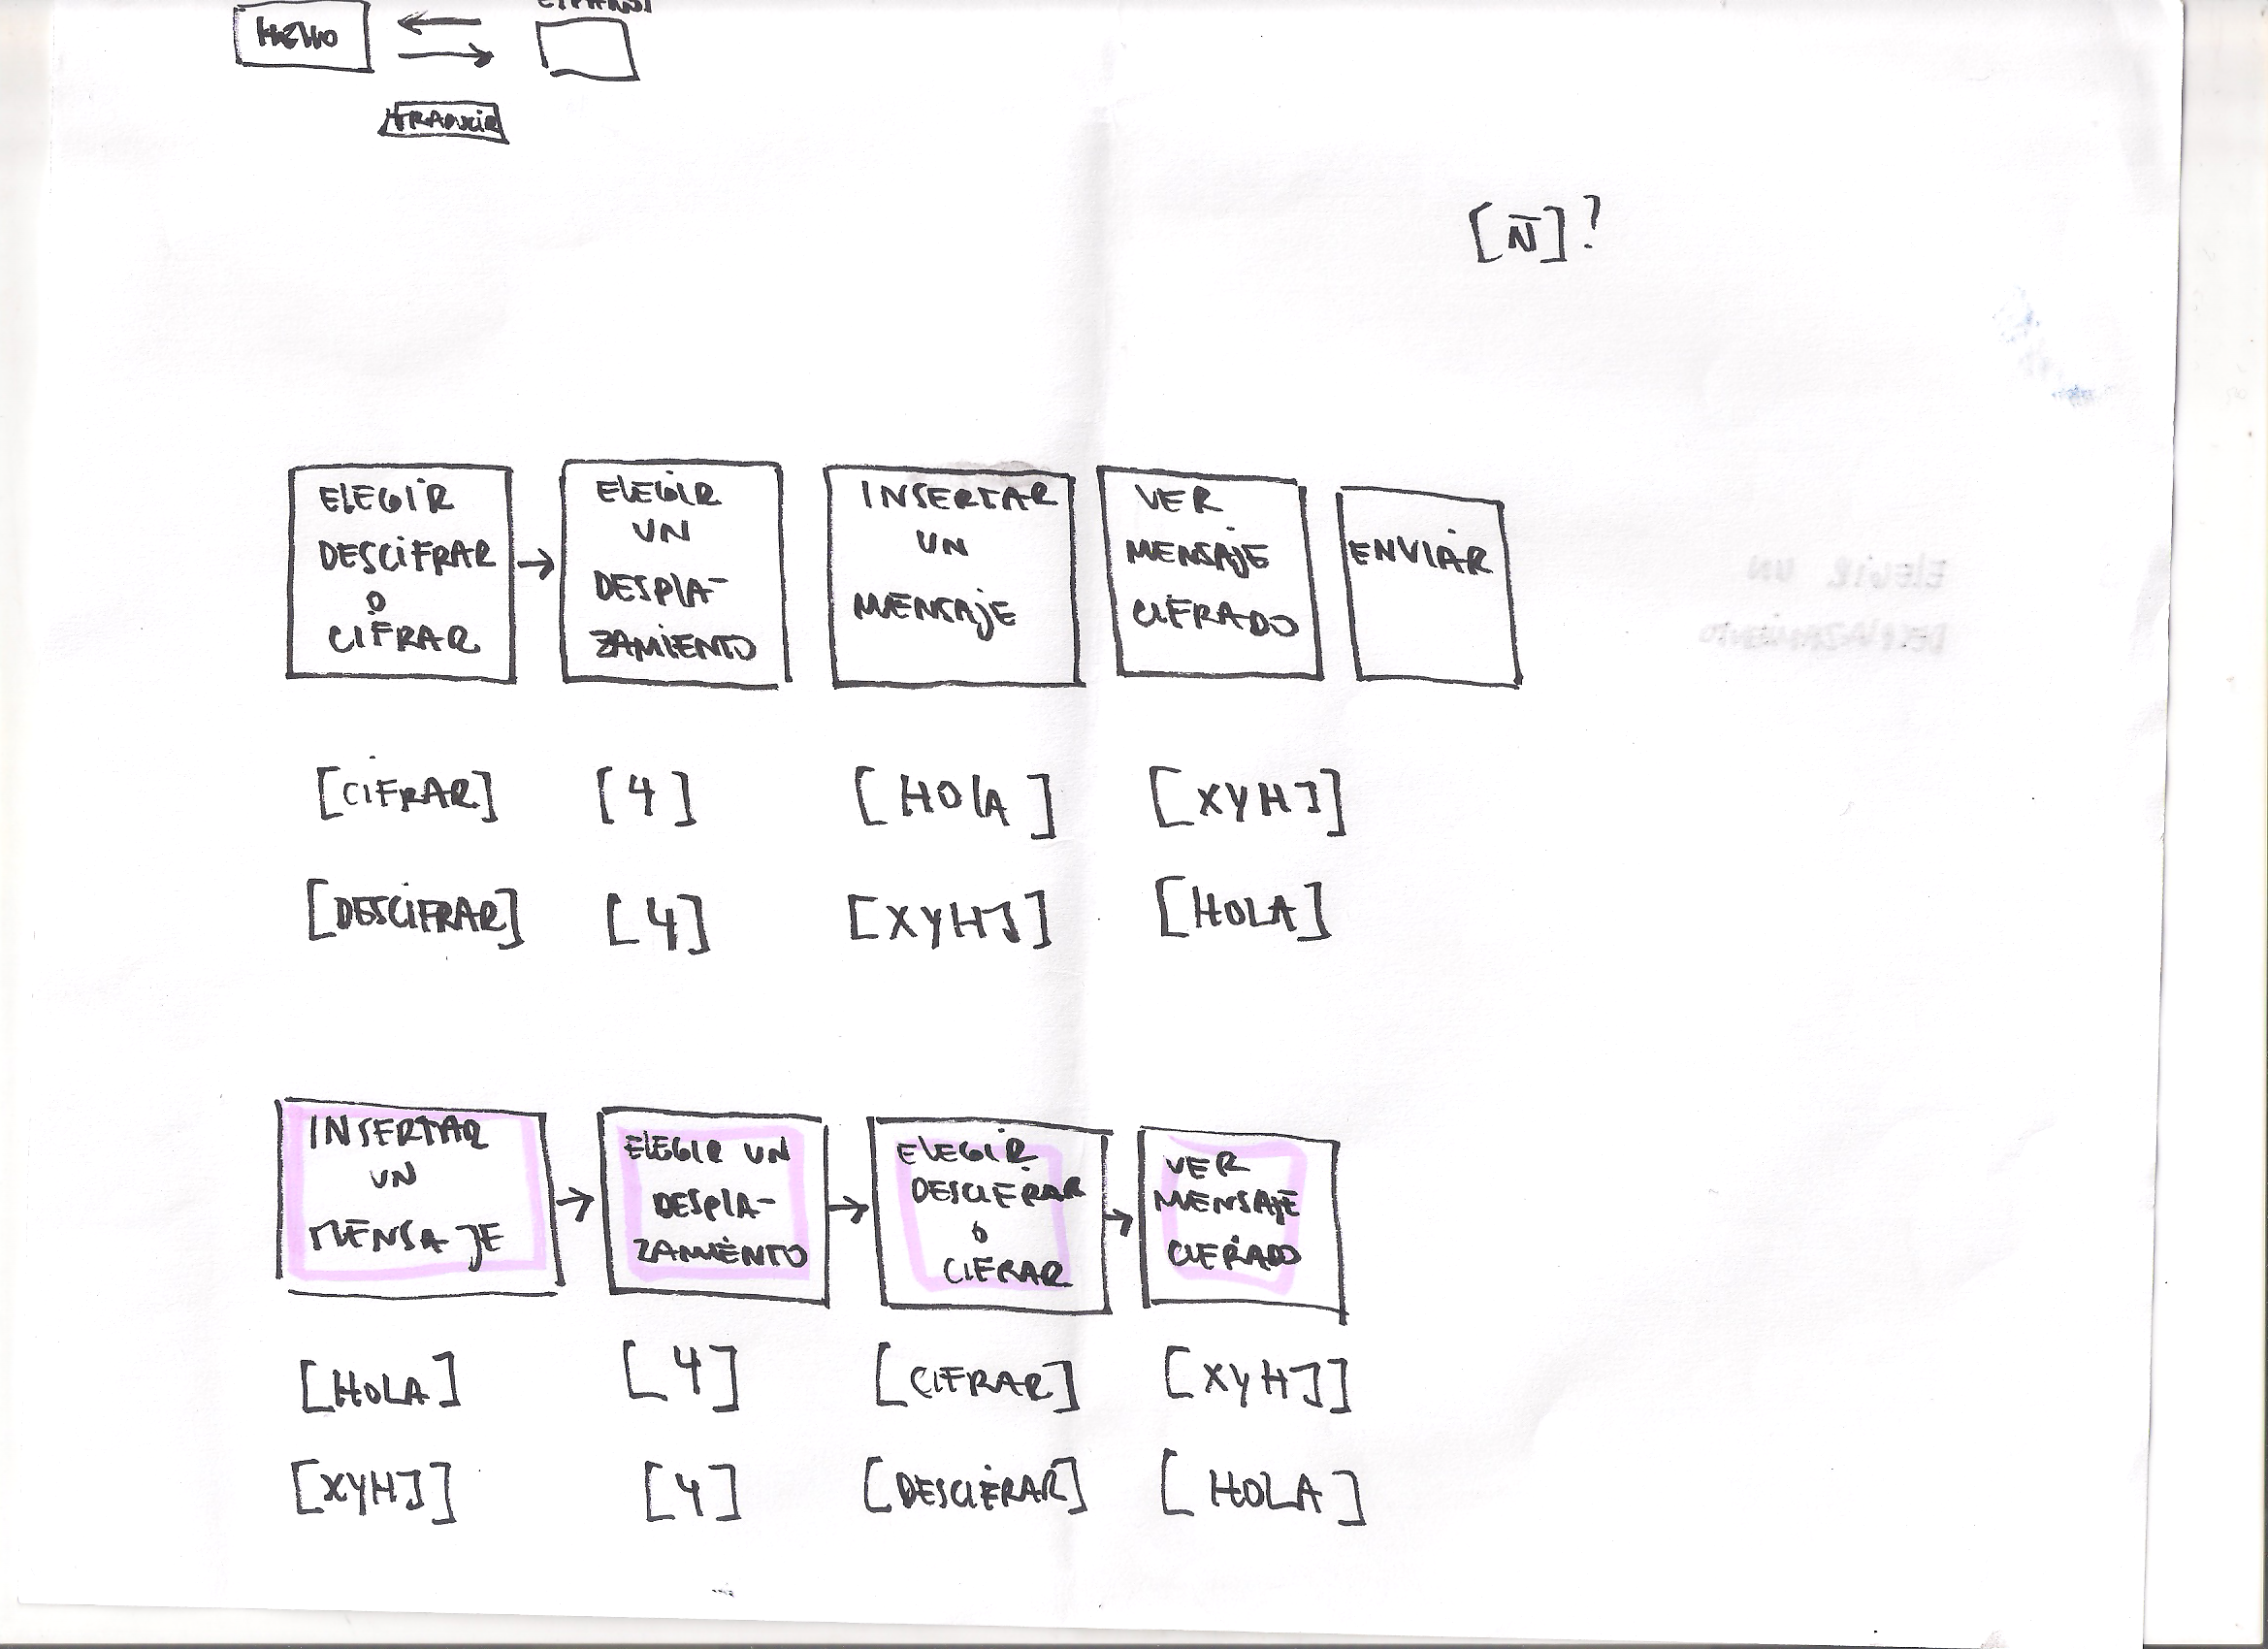 HELLO
TRADUCIR
[Ñ]?
ELEGIR
DESCIFRAR
O
CIFRAR
ELEGIR
UN
DESPLA-
ZAMIENTO
INSERTAR
UN
MENSAJE
VER
MENSAJE
CIFRADO
ENVIAR
[CIFRAR] [4] [HOLA] [XYHJ]
[DESCIFRAR] [4] [XYHJ] [HOLA]
INSERTAR
UN
MENSAJE
ELEGIR UN
DESPLA-
ZAMIENTO
ELEGIR
DESCIFRAR
O
CIFRAR
VER
MENSAJE
CIFRADO
[HOLA] [4] [CIFRAR] [XYHJ]
[XYHJ] [4] [DESCIFRAR] [HOLA]
ELEGIR UN
DESPLAZAMIENTO